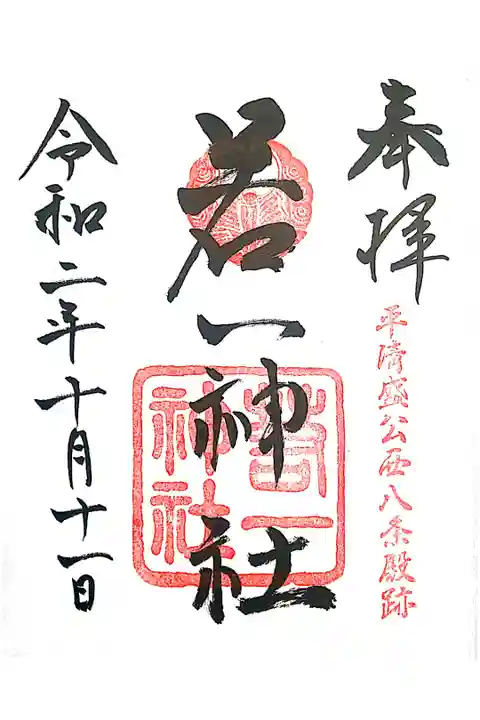 奉拝
平清盛公西八条殿跡
若一神社
若一
神社
令和二年十月十一日